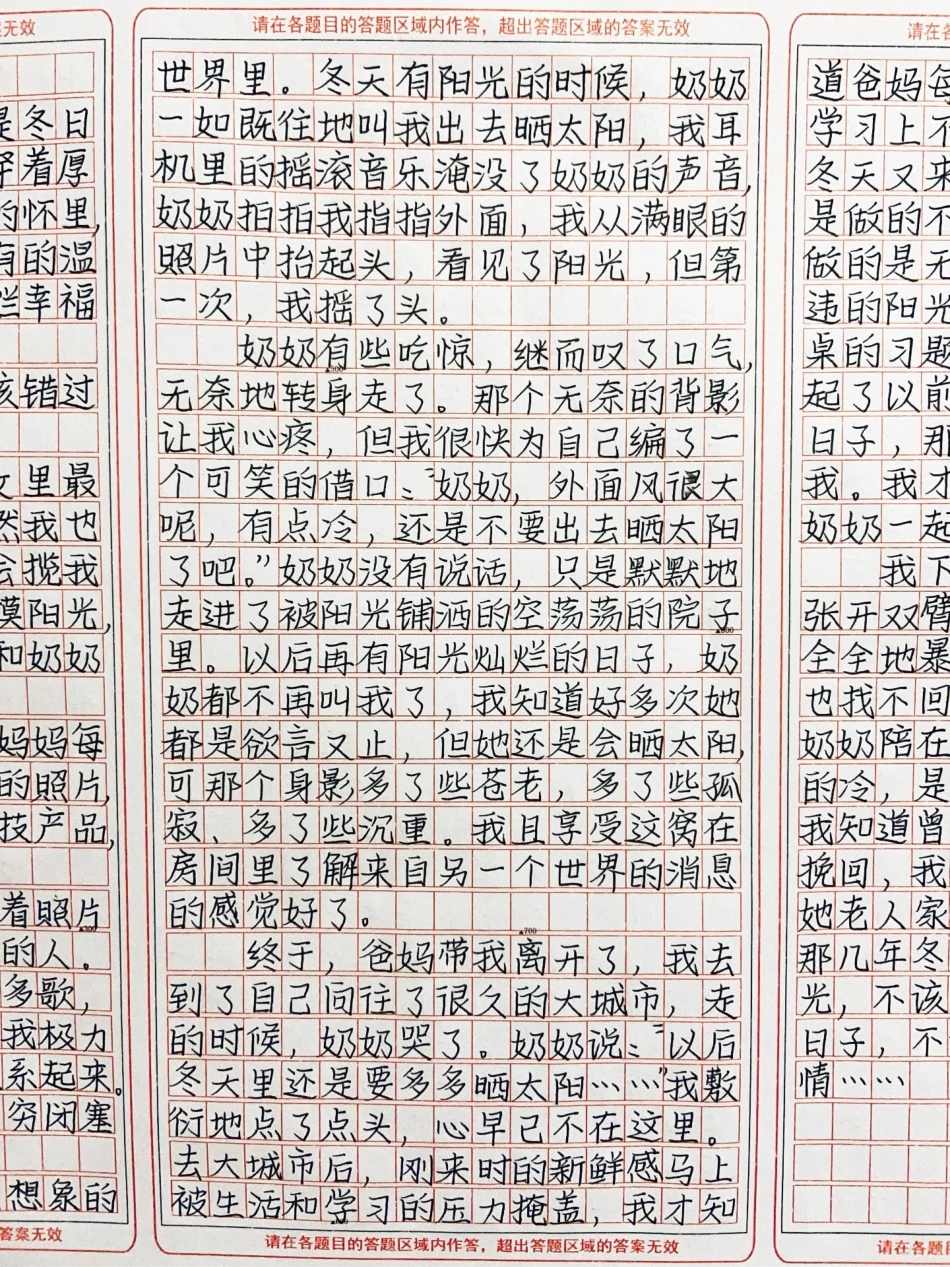 案无效
是冬日
穿着厚
的怀里,
有的温
烂幸福
该错过
里最
然我也
会揽我
漠阳光,
和奶奶
妈妈每
的照片,
技产品,
着照片
▲300
的人。
多歌,
我极力
系起来。
穷闭塞
想象的
答案无效
请在各题目的答题区域内作答，超出答题区域的答案无效
世界里。冬天有阳光的时候，奶奶
一如既往地叫我出去晒太阳，我耳
机里的摇滚音乐淹没了奶奶的声音,
奶奶拍拍我指指外面，我从满眼的
照片中抬起头，看见了阳光，但第
一次，我摇了头。
奶奶有些吃惊，继而叹了口气,
▲500
无奈地转身走了。那个无奈的背影
让我心疼，但我很快为自己编了一
个可笑的借口：“奶奶，外面风很大
呢，有点冷，还是不要出去晒太阳
了吧。”奶奶没有说话，只是默默地
走进了被阳光铺洒的空荡荡的院子
▲600
里。以后再有阳光灿烂的日子，奶
奶都不再叫我了，我知道好多次她
都是欲言又止，但她还是会晒太阳,
可那个身影多了些苍老，多了些孤
寂、多了些沉重。我且享受这窝在
房间里了解来自另一个世界的消息
的感觉好了。
▲700
终于，爸妈带我离开了，我去
到了自己向往了很久的大城市，走
的时候，奶奶哭了。奶奶说：“以后
冬天里还是要多多晒太阳……”我敷
衍地点了点头，心早已不在这里。
去大城市后，刚来时的新鲜感马上
被生活和学习的压力掩盖，我才知
请在各题目的答题区域内作答，超出答题区域的答案无效
请在各
道爸妈每
学习上不
冬天又来
是做的不
做的是无
违的阳光
桌的习题
起了以前
日子，那
我。我才
奶奶一起
我下
张开双臂
全全地暴
也找不回
奶奶陪在
的冷，是
我知道曾
挽回，我
她老人家
那几年冬
光，不该
日子，不
情……
请在各题